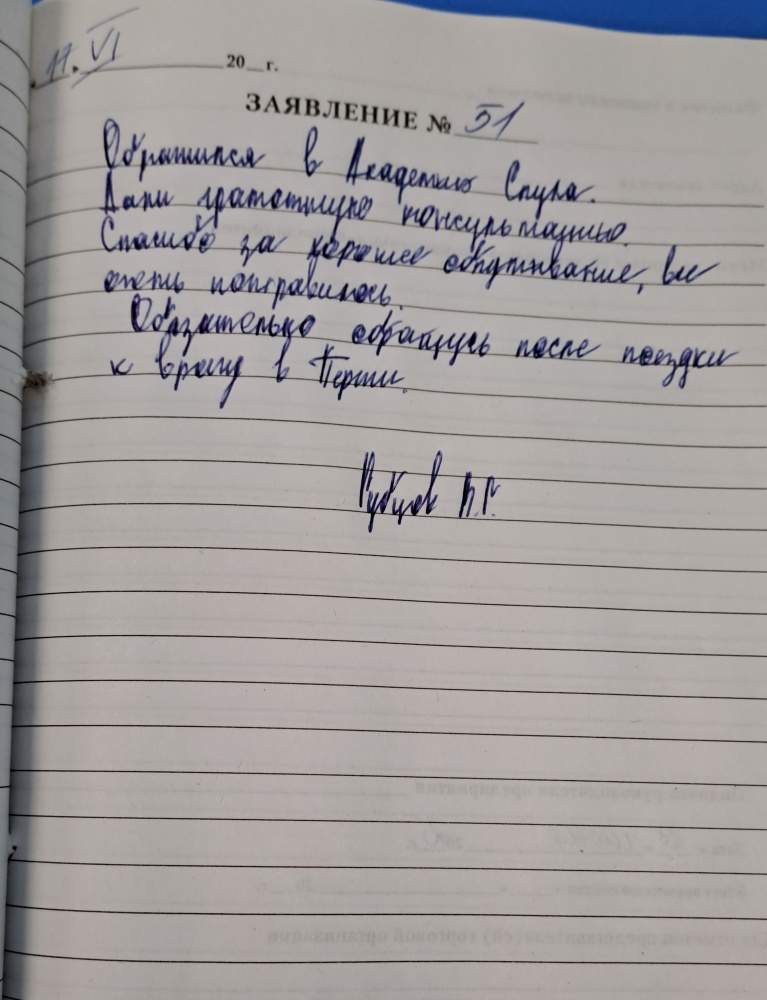 17. VI 20__г.
ЗАЯВЛЕНИЕ № 51
Обратился в Академию Слуха.
Дали грамотную консультацию.
Спасибо за хорошее обслуживание, все
очень понравилось.
Обязательно обращусь после поездки
к врачу в Перми.
Рубцов В.Г.